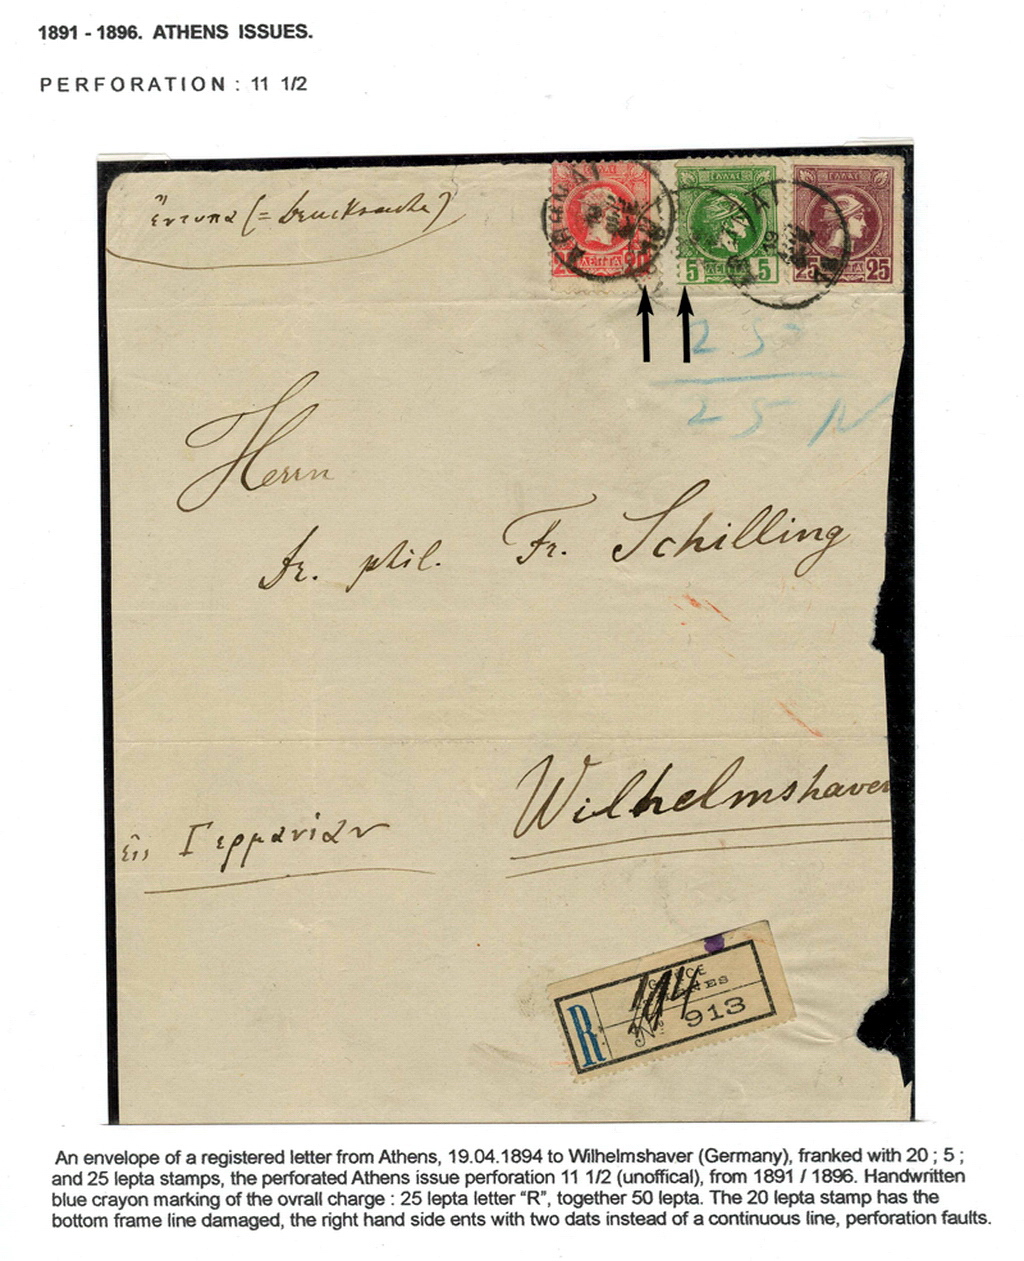 1891 - 1896. ATHENS ISSUES.
PERFORATION : 11 1/2
ἔντυπα (= Drucksache)
ΕΛΛΑΣ ΕΛΛΑΣ ΕΛΛΑΣ
20 ΛΕΠΤΑ 20 5 ΛΕΠΤΑ 5 25 ΛΕΠΤΑ 25
25
25
Herrn
Dr. phil. Fr. Schilling
Wilhelmshaven
εἰς Γερμανίαν
R
GRÈCE
ATHÈNES
114
No 913
An envelope of a registered letter from Athens, 19.04.1894 to Wilhelmshaver (Germany), franked with 20 ; 5 ;
and 25 lepta stamps, the perforated Athens issue perforation 11 1/2 (unoffical), from 1891 / 1896. Handwritten
blue crayon marking of the ovrall charge : 25 lepta letter “R”, together 50 lepta. The 20 lepta stamp has the
bottom frame line damaged, the right hand side ents with two dats instead of a continuous line, perforation faults.